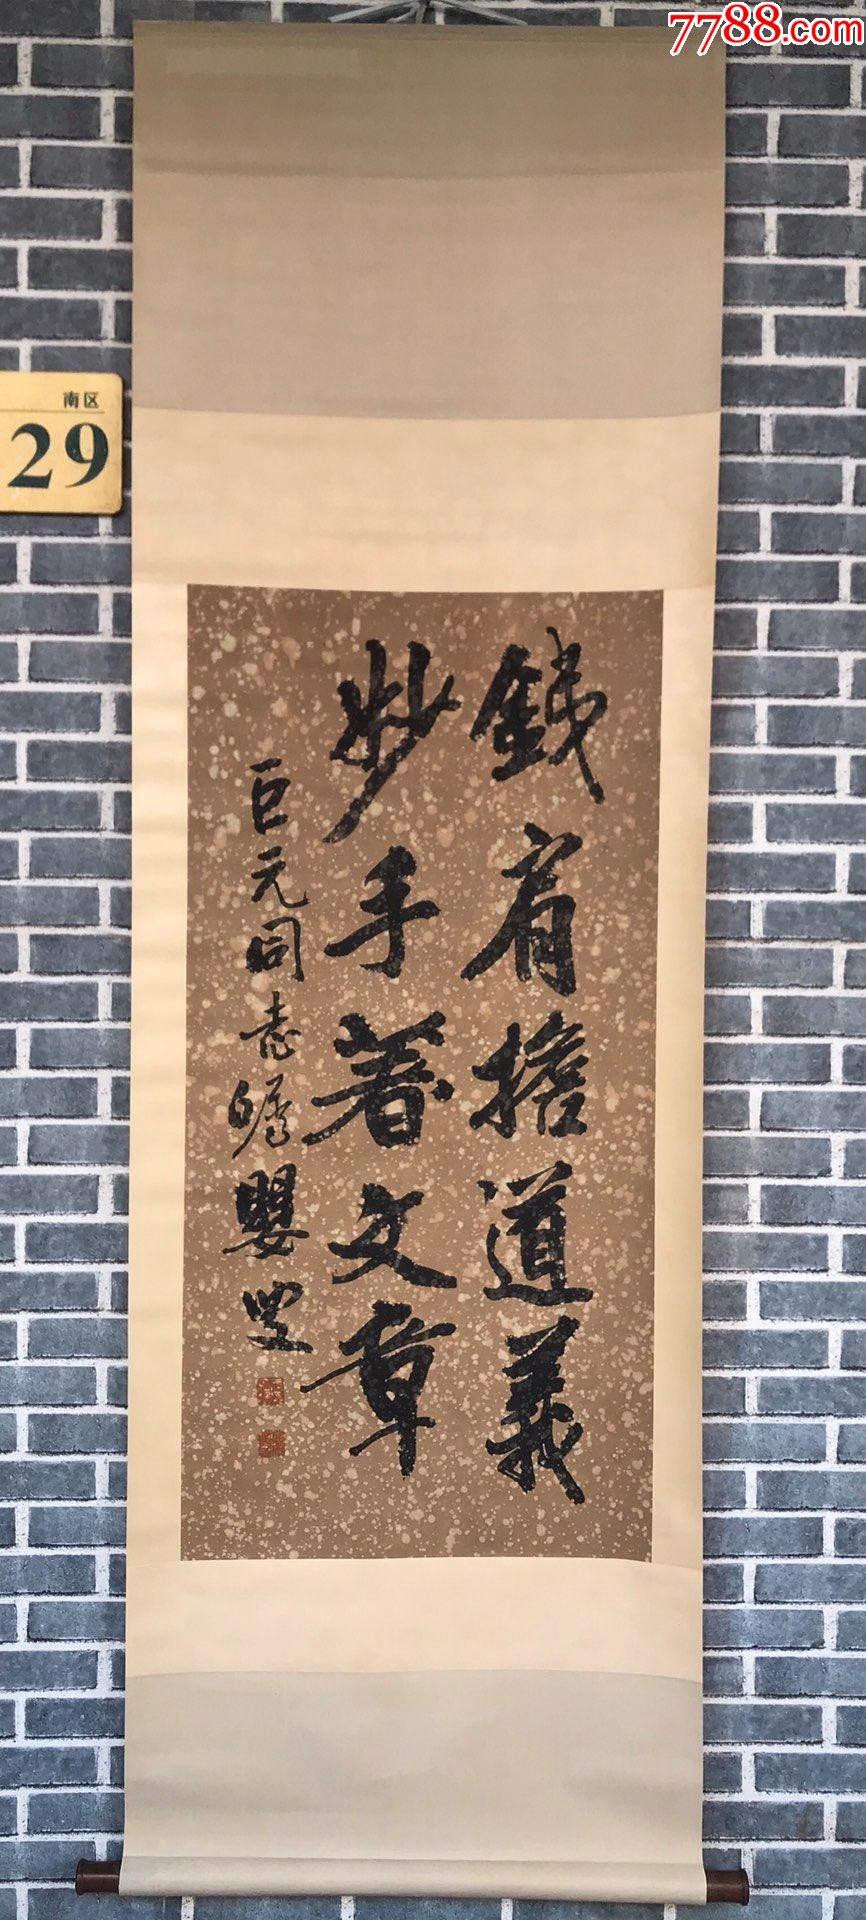 7788.com
南区
29
鐵肩擔道義
妙手著文章
巨元同志嘱
嬰叟